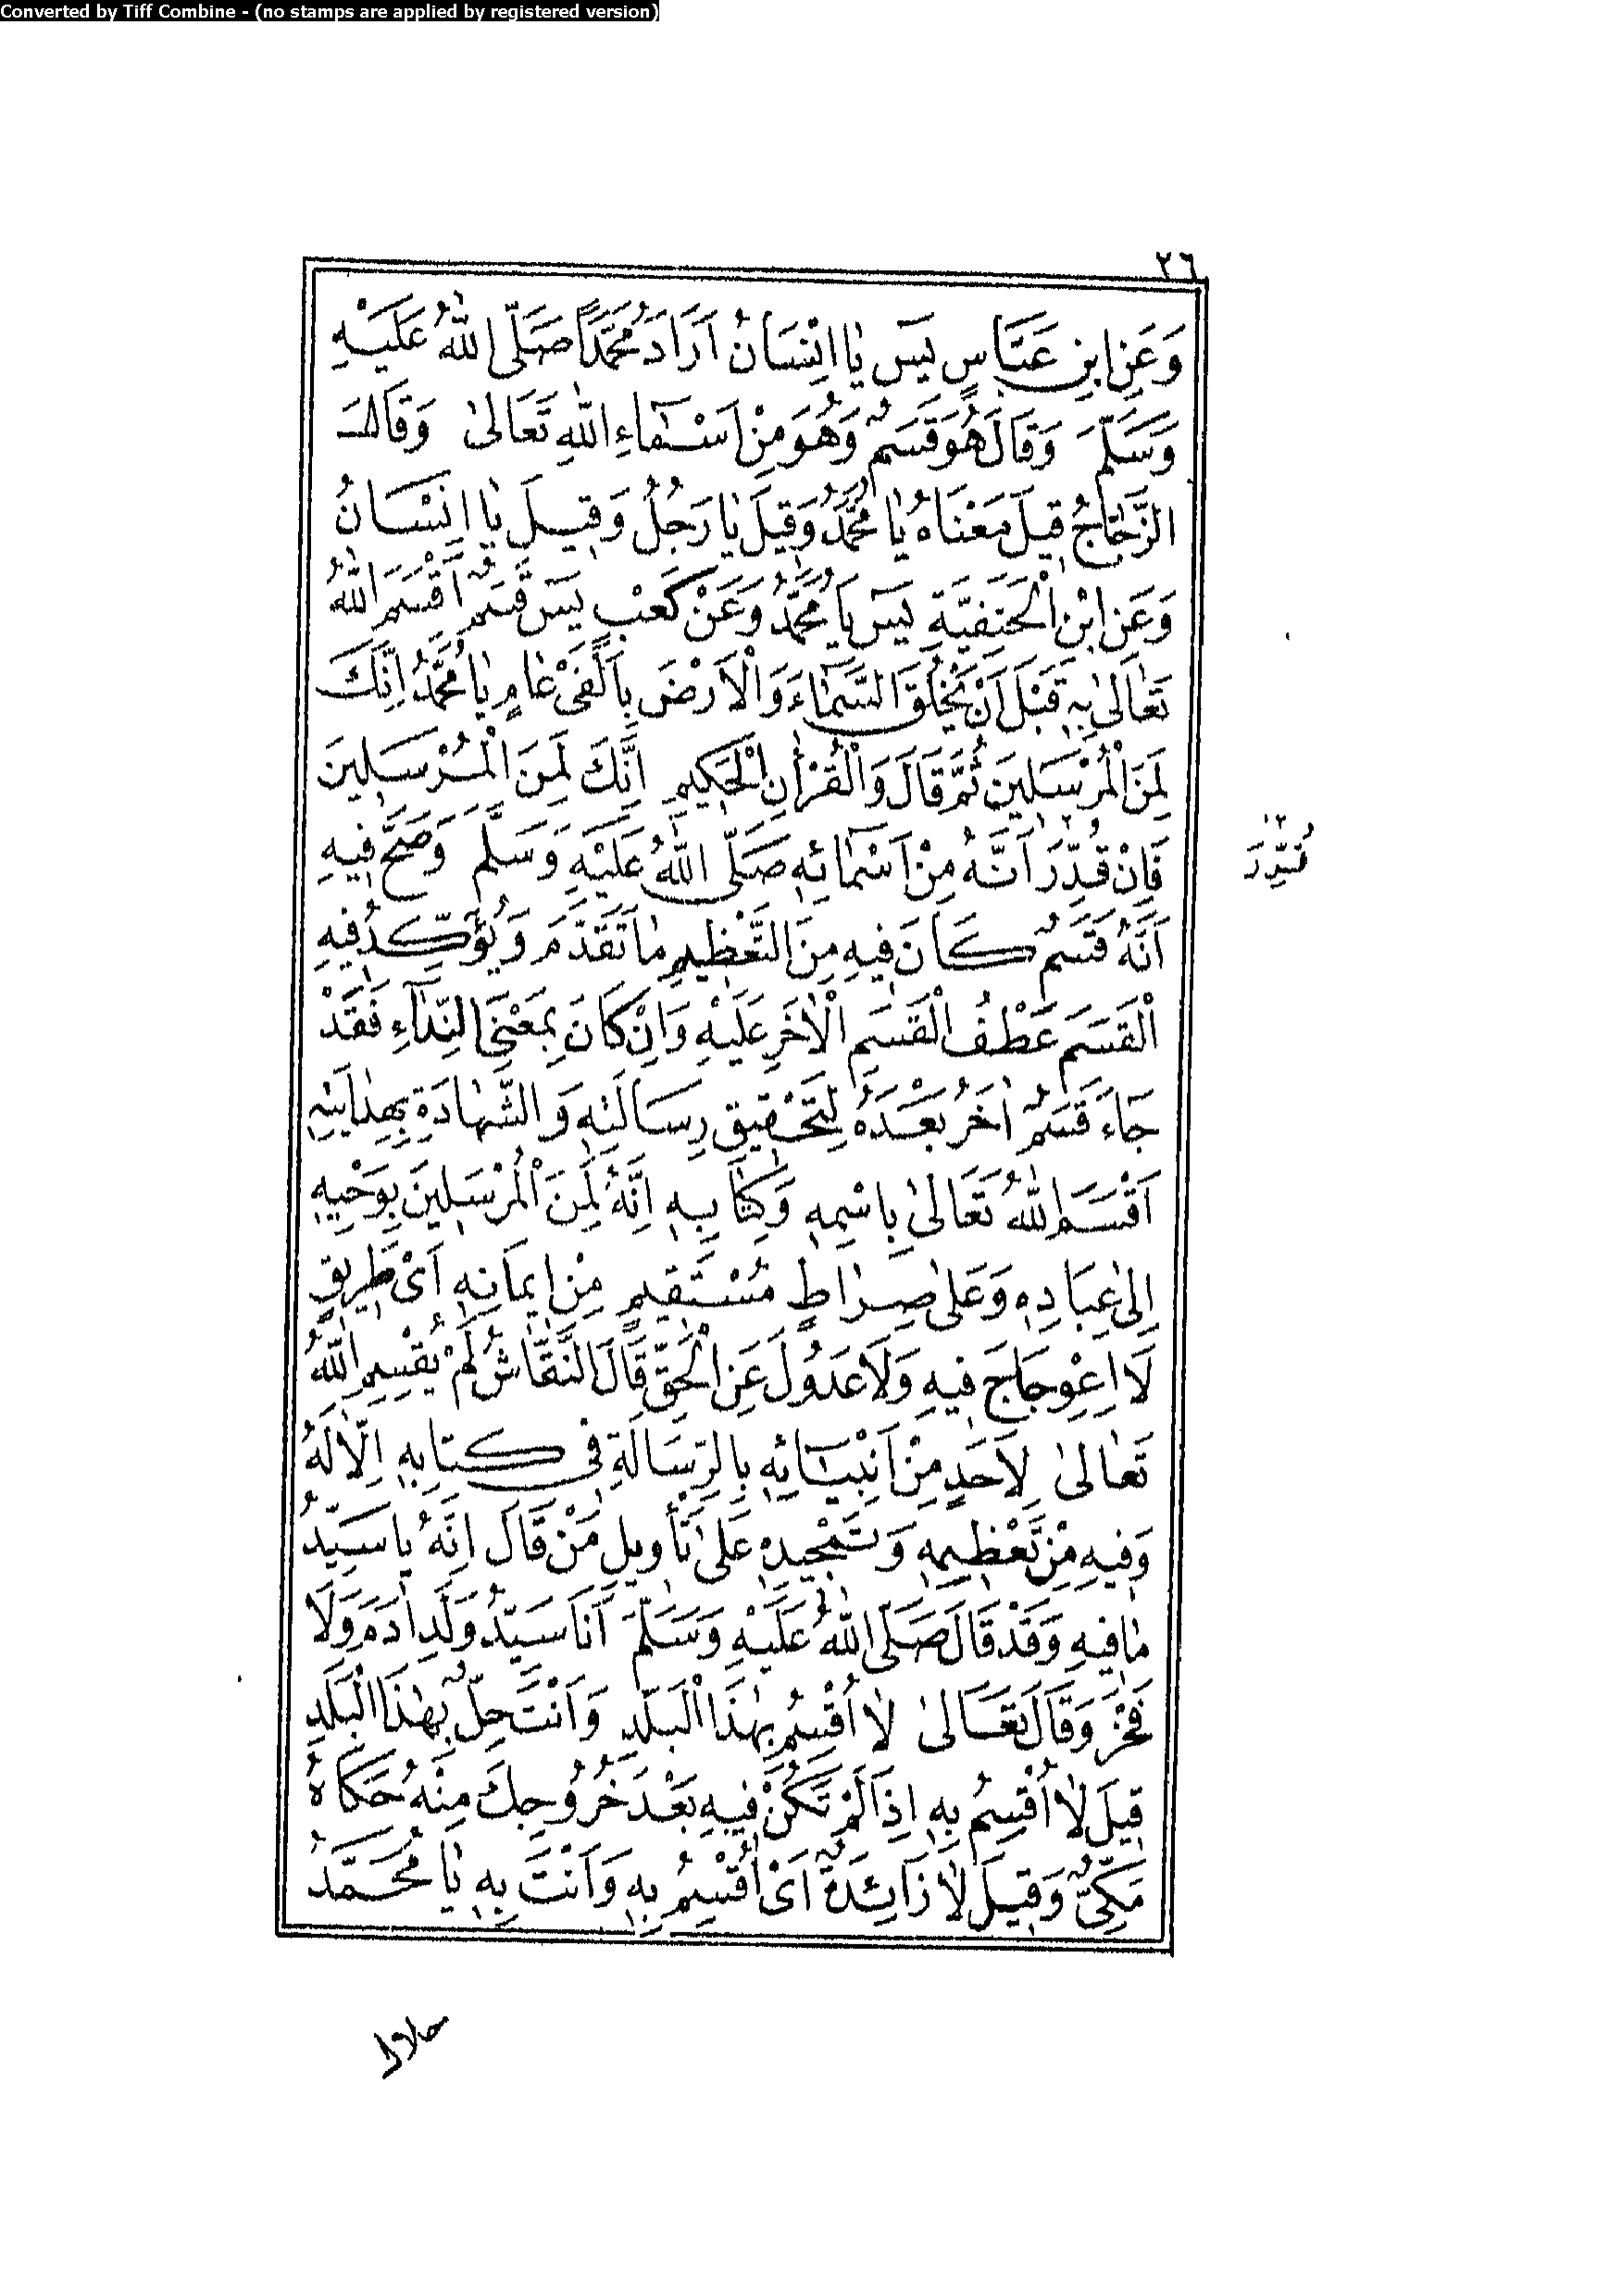 Converted by Tiff Combine - (no stamps are applied by registered version)
٢٦
وَعَنِ ابْنِ عَبَّاسٍ يٓس يَا اِنْسَانُ اَرَادَ مُحَمَّدًا صَلَّى اللهُ عَلَيْهِ
وَسَلَّمَ وَقَالَ هُوَ قَسَمٌ وَهُوَ مِنْ اَسْمَآءِ اللهِ تَعَالىٰ وَقَالَ
الزَّجَّاجُ قِيلَ مَعْنَاهُ يَا مُحَمَّدُ وَقِيلَ يَا رَجُلُ وَقِيلَ يَا اِنْسَانُ
وَعَنِ ابْنِ الْحَنَفِيَّةِ يٓس يَا مُحَمَّدُ وَعَنْ كَعْبٍ يٓس قَسَمٌ اَقْسَمَ اللهُ
تَعَالىٰ بِهِ قَبْلَ اَنْ يَخْلُقَ السَّمَآءَ وَالْاَرْضَ بِاَلْفَىْ عَامٍ يَا مُحَمَّدُ اِنَّكَ
لَمِنَ الْمُرْسَلِينَ ثُمَّ قَالَ وَالْقُرْاٰنِ الْحَكِيمِ اِنَّكَ لَمِنَ الْمُرْسَلِينَ
فَاِنْ قُدِّرَ اَنَّهُ مِنْ اَسْمَائِهِ صَلَّى اللهُ عَلَيْهِ وَسَلَّمَ وَصَحَّ فِيهِ
قُدِّرَ
اَنَّهُ قَسَمٌ كَانَ فِيهِ مِنَ التَّعْظِيمِ مَا تَقَدَّمَ وَيُؤَكِّدُ فِيهِ
الْقَسَمَ عَطْفُ الْقَسَمِ الْاٰخَرِ عَلَيْهِ وَاِنْ كَانَ بِمَعْنَى النِّدَآءِ فَقَدْ
جَآءَ قَسَمٌ اٰخَرُ بَعْدَهُ لِتَحْقِيقِ رِسَالَتِهِ وَالشَّهَادَةِ بِهِدَايَتِهِ
اَقْسَمَ اللهُ تَعَالىٰ بِاسْمِهِ وَكِتَابِهِ اِنَّهُ لَمِنَ الْمُرْسَلِينَ بِوَحْيِهِ
اِلىٰ عِبَادِهِ وَعَلىٰ صِرَاطٍ مُسْتَقِيمٍ مِنْ اِيمَانِهِ اَىْ طَرِيقٍ
لَا اعْوِجَاجَ فِيهِ وَلَا عُدُولَ عَنِ الْحَقِّ قَالَ النَّقَّاشُ لَمْ يُقْسِمِ اللهُ
تَعَالىٰ لِاَحَدٍ مِنْ اَنْبِيَآئِهِ بِالرِّسَالَةِ فِى كِتَابِهِ اِلَّا لَهُ
وَفِيهِ مِنْ تَعْظِيمِهِ وَتَمْجِيدِهِ عَلىٰ تَأْوِيلِ مَنْ قَالَ اِنَّهُ يَا سَيِّدُ
مَا فِيهِ وَقَدْ قَالَ صَلَّى اللهُ عَلَيْهِ وَسَلَّمَ اَنَا سَيِّدُ وَلَدِ اٰدَمَ وَلَا
فَخْرَ وَقَالَ تَعَالىٰ لَا اُقْسِمُ بِهٰذَا الْبَلَدِ وَاَنْتَ حِلٌّ بِهٰذَا الْبَلَدِ
قِيلَ لَا اُقْسِمُ بِهِ اِذَا لَمْ تَكُنْ فِيهِ بَعْدَ خُرُوجِكَ مِنْهُ حَكَاهُ
مَكِّىٌّ وَقِيلَ لَا زَائِدَةٌ اَىْ اُقْسِمُ بِهِ وَاَنْتَ بِهِ يَا مُحَمَّدُ
حلال